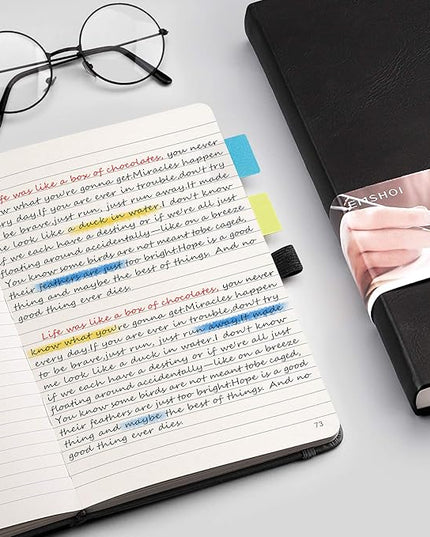 fe was like a box of chocolates, you never
w what you're gonna get.Miracles happen
ry day.If you are ever in trouble,don't try
be brave,just run, just run away.It made
look like a duck in water.I don't know
we each have a destiny or if we're all just
floating around accidentally—like on a breeze
You know some birds are not meant tobe caged,
their feathers are just too bright.Hope is a good
thing and maybe the best of things. And no
good thing ever dies.
Life was like a box of chocolates, you never
know what you're gonna get.Miracles happen
every day.If you are ever in trouble,don't try
to be brave,just run, just run away.It made
me look like a duck in water.I don't know
if we each have a destiny or if we're all just
floating around accidentally—like on a breeze
You know some birds are not meant tobe caged,
their feathers are just too bright.Hope is a good
thing and maybe the best of things. And no
good thing ever dies.
73
EMSHOI